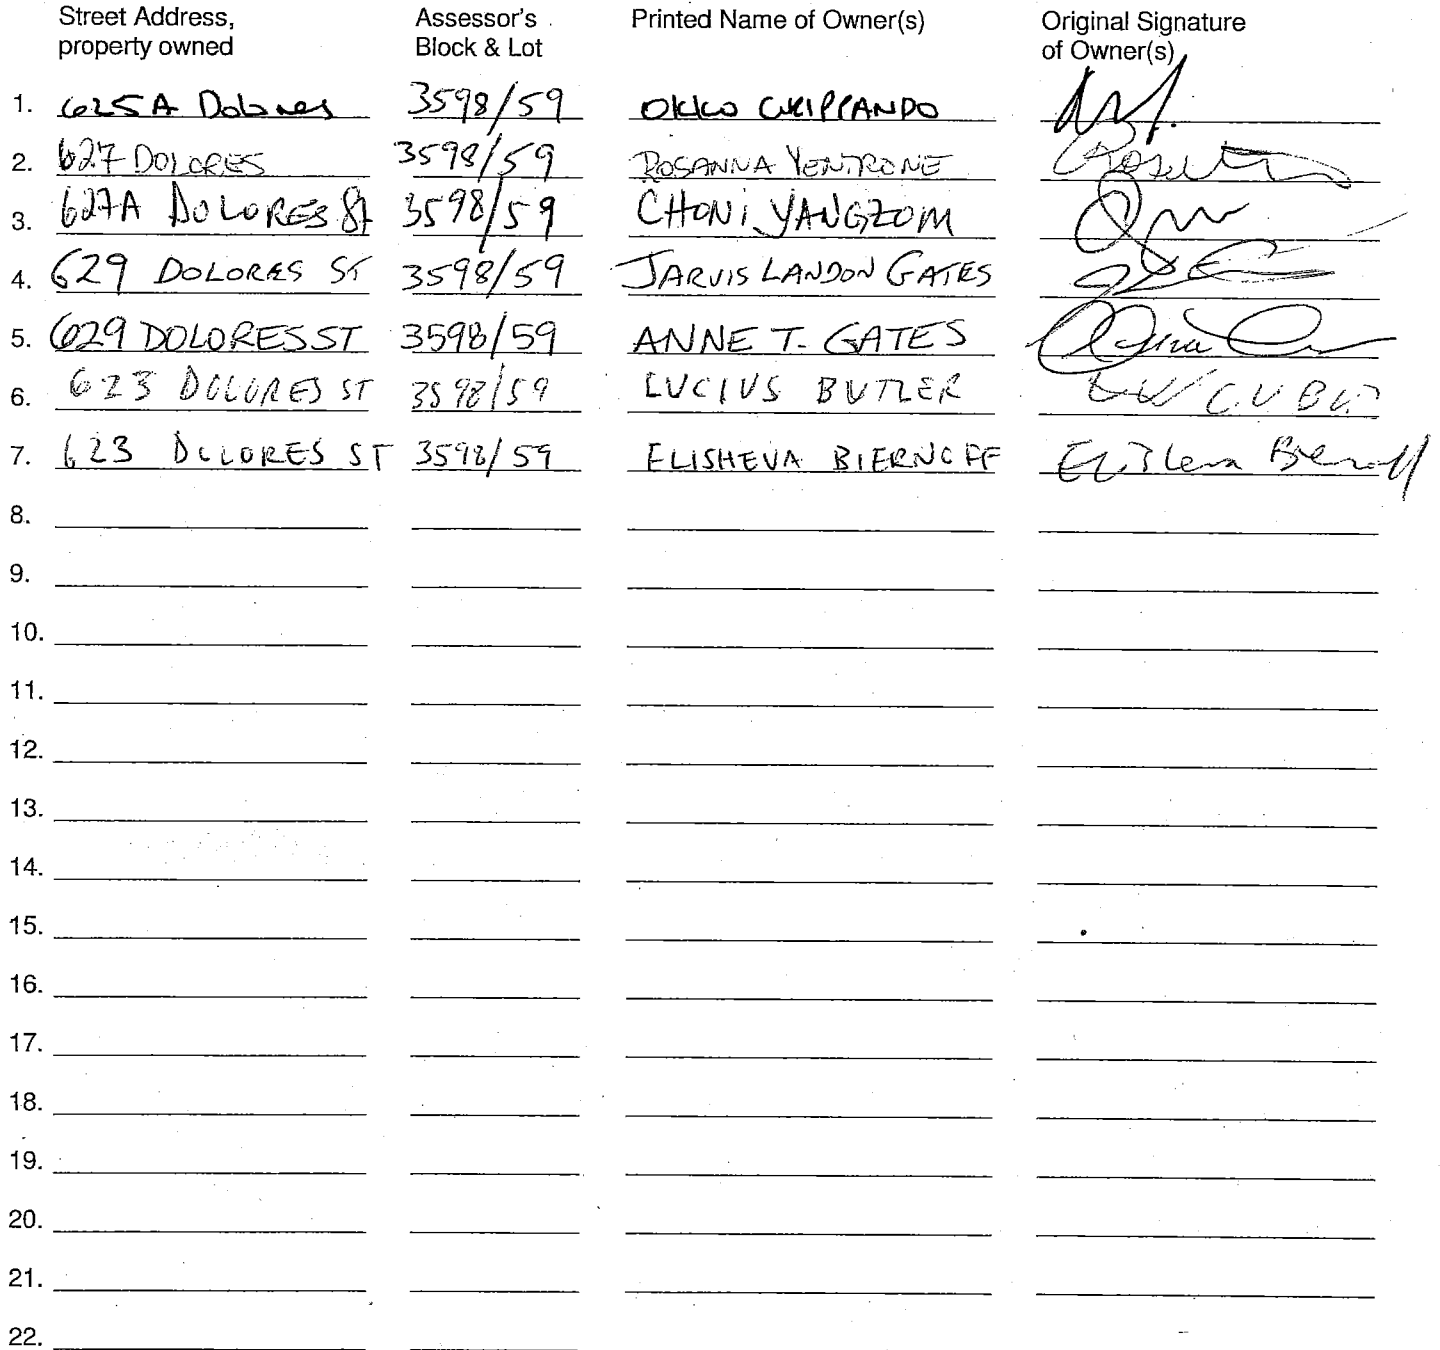 Street Address, Assessor's Printed Name of Owner(s) Original Signature
property owned Block & Lot of Owner(s)
1. 625A Dolores 3598/59
2. 627 DOLORES 3598/59 ROSANNA YENTRONE
3. 627A DOLORES St 3598/59 CHONI YANGZOM
4. 629 DOLORES ST 3598/59 JARVIS LANDON GATES
5. 629 DOLORES ST 3598/59 ANNE T. GATES
6. 623 DOLORES ST 3598/59 LUCIUS BUTLER
7. 623 DOLORES ST 3598/59 ELISHEVA BIERNOFF Elisheva Biernoff
8.
9.
10.
11.
12.
13.
14.
15.
16.
17.
18.
19.
20.
21.
22.